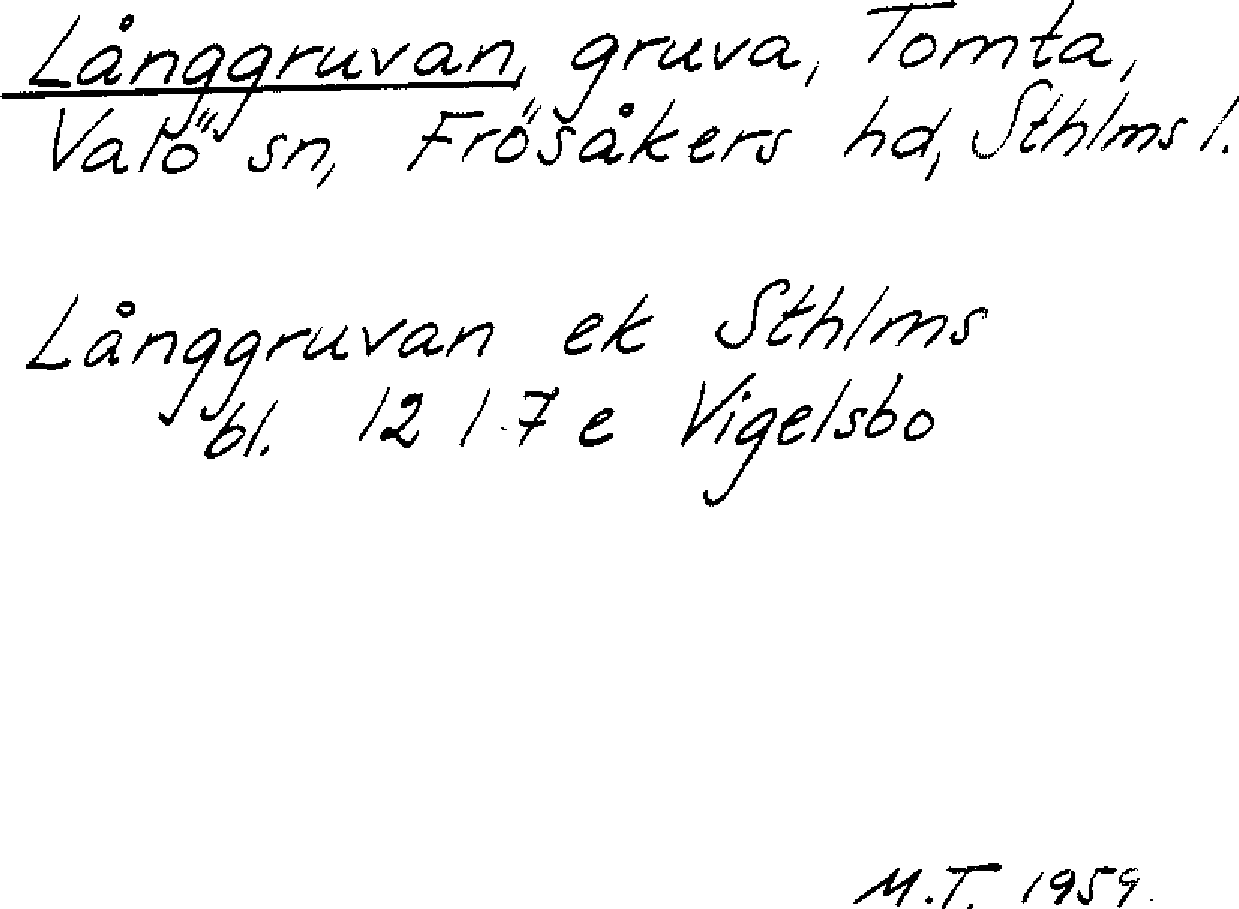 Långgruvan, gruva, Tomta,
Valö sn, Frösåkers hd, Sthlms l.
Långgruvan ek Sthlms
bl. 12 I 7 e Vigelsbo
M.T. 1959.